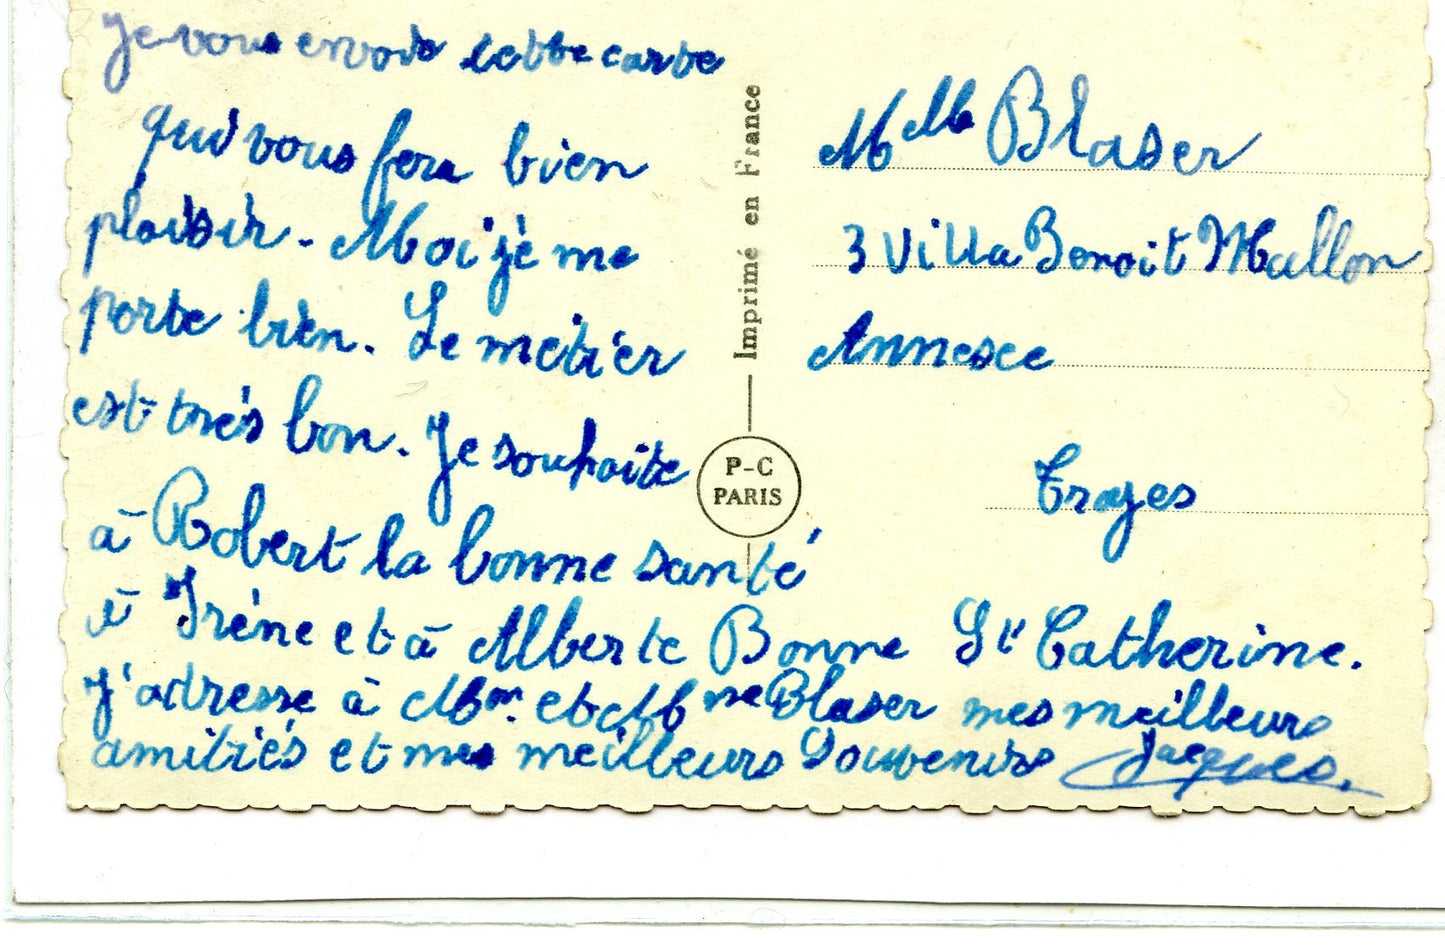 Je vous envoie cette carte
qui vous fera bien
plaisir. Moi je me
porte bien. Le métier
est très bon. Je souhaite
à Robert la bonne santé
à Irène et à Alberte Bonne St Catherine.
J'adresse à Mr. et Mme Blaser mes meilleurs
amitiés et mes meilleurs Souvenirs Jacques.
Imprimé en France
P-C
PARIS
Melle Blaser
3 Villa Benoit Mallon
Annexe
Troyes